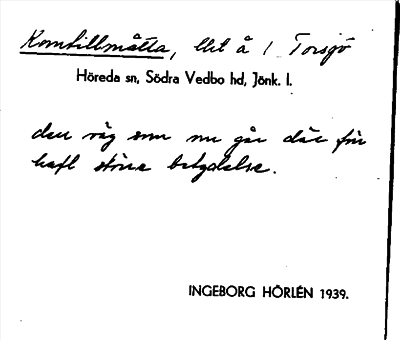 Komtillmåtta, llit å 1 Torsjö
Höreda sn, Södra Vedbo hd, Jönk. l.
den väg som nu går där för
haft större betydelse.
INGEBORG HÖRLÉN 1939.